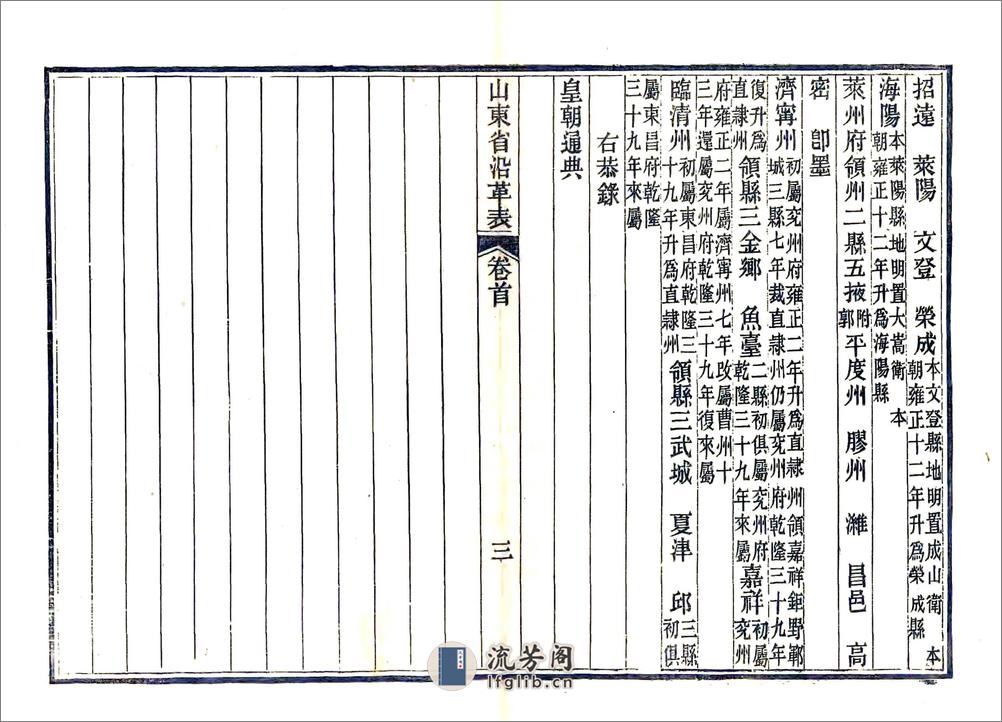 招遠　萊陽　文登　榮成本文登縣地明置成山衛　本朝雍正十二年升爲榮成縣
海陽本萊陽縣地明置大嵩衛　本朝雍正十二年升爲海陽縣
萊州府領州二縣五掖附郭平度州　膠州　濰　昌邑　高
密　卽墨
濟寧州初屬兖州府雍正二年升爲直隸州領嘉祥鉅野鄆城三縣七年裁直隸州仍屬兖州府乾隆三十九年
復升爲直隸州領縣三金鄉　魚臺二縣初俱屬兖州府乾隆三十九年來屬嘉祥初屬兖州
府雍正二年屬濟寧州七年改屬曹州十三年還屬兖州府乾隆三十九年復來屬
臨清州初屬東昌府乾隆三十九年升爲直隸州領縣三武城　夏津　邱三縣初俱
屬東昌府乾隆三十九年來屬
右恭錄
皇朝通典
山東省沿革表　卷首　三
流芳阁
lfglib.cn